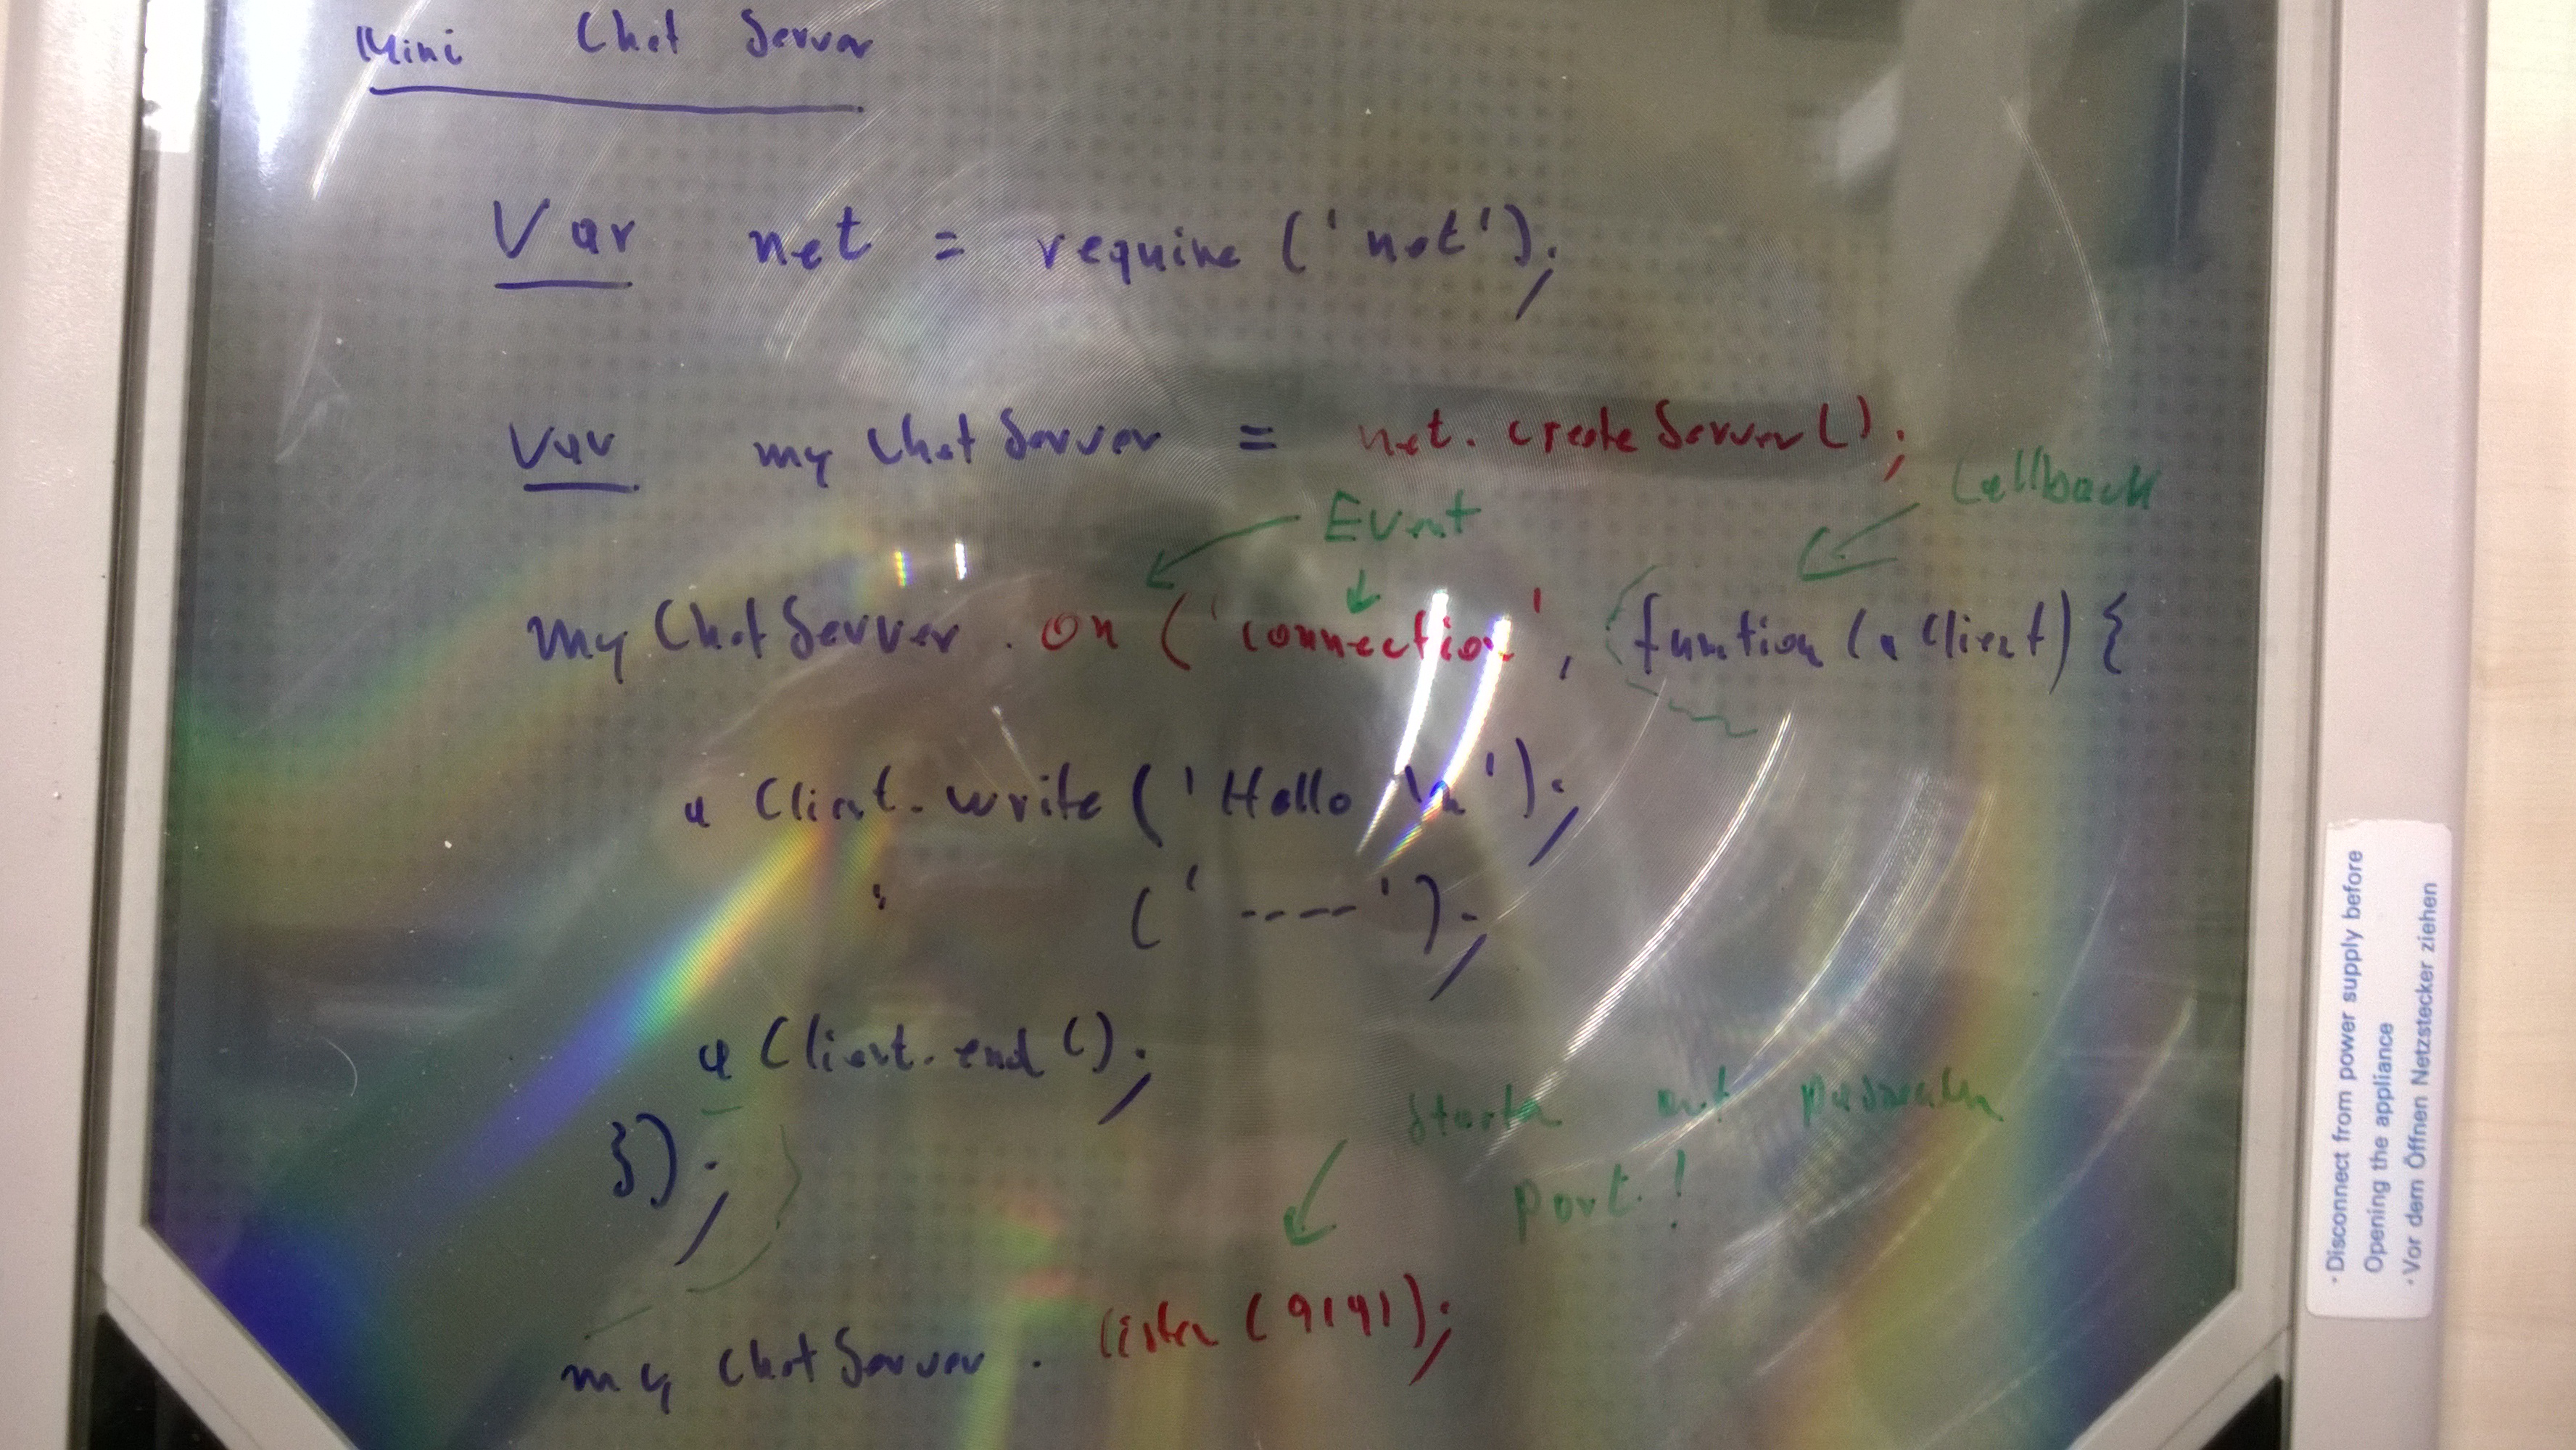 Mini Chat Server
Var net = require ('net');
Var myChatServer = net.createServer();
Callback
Event
myChatServer.on ('connection', function (aClient) {
aClient.write ('Hallo \n');
" ('----');
aClient.end();
});
Starten auf
port!
myChatServer.listen (9191);
·Disconnect from power supply before
Opening the appliance
·Vor dem Öffnen Netzstecker ziehen